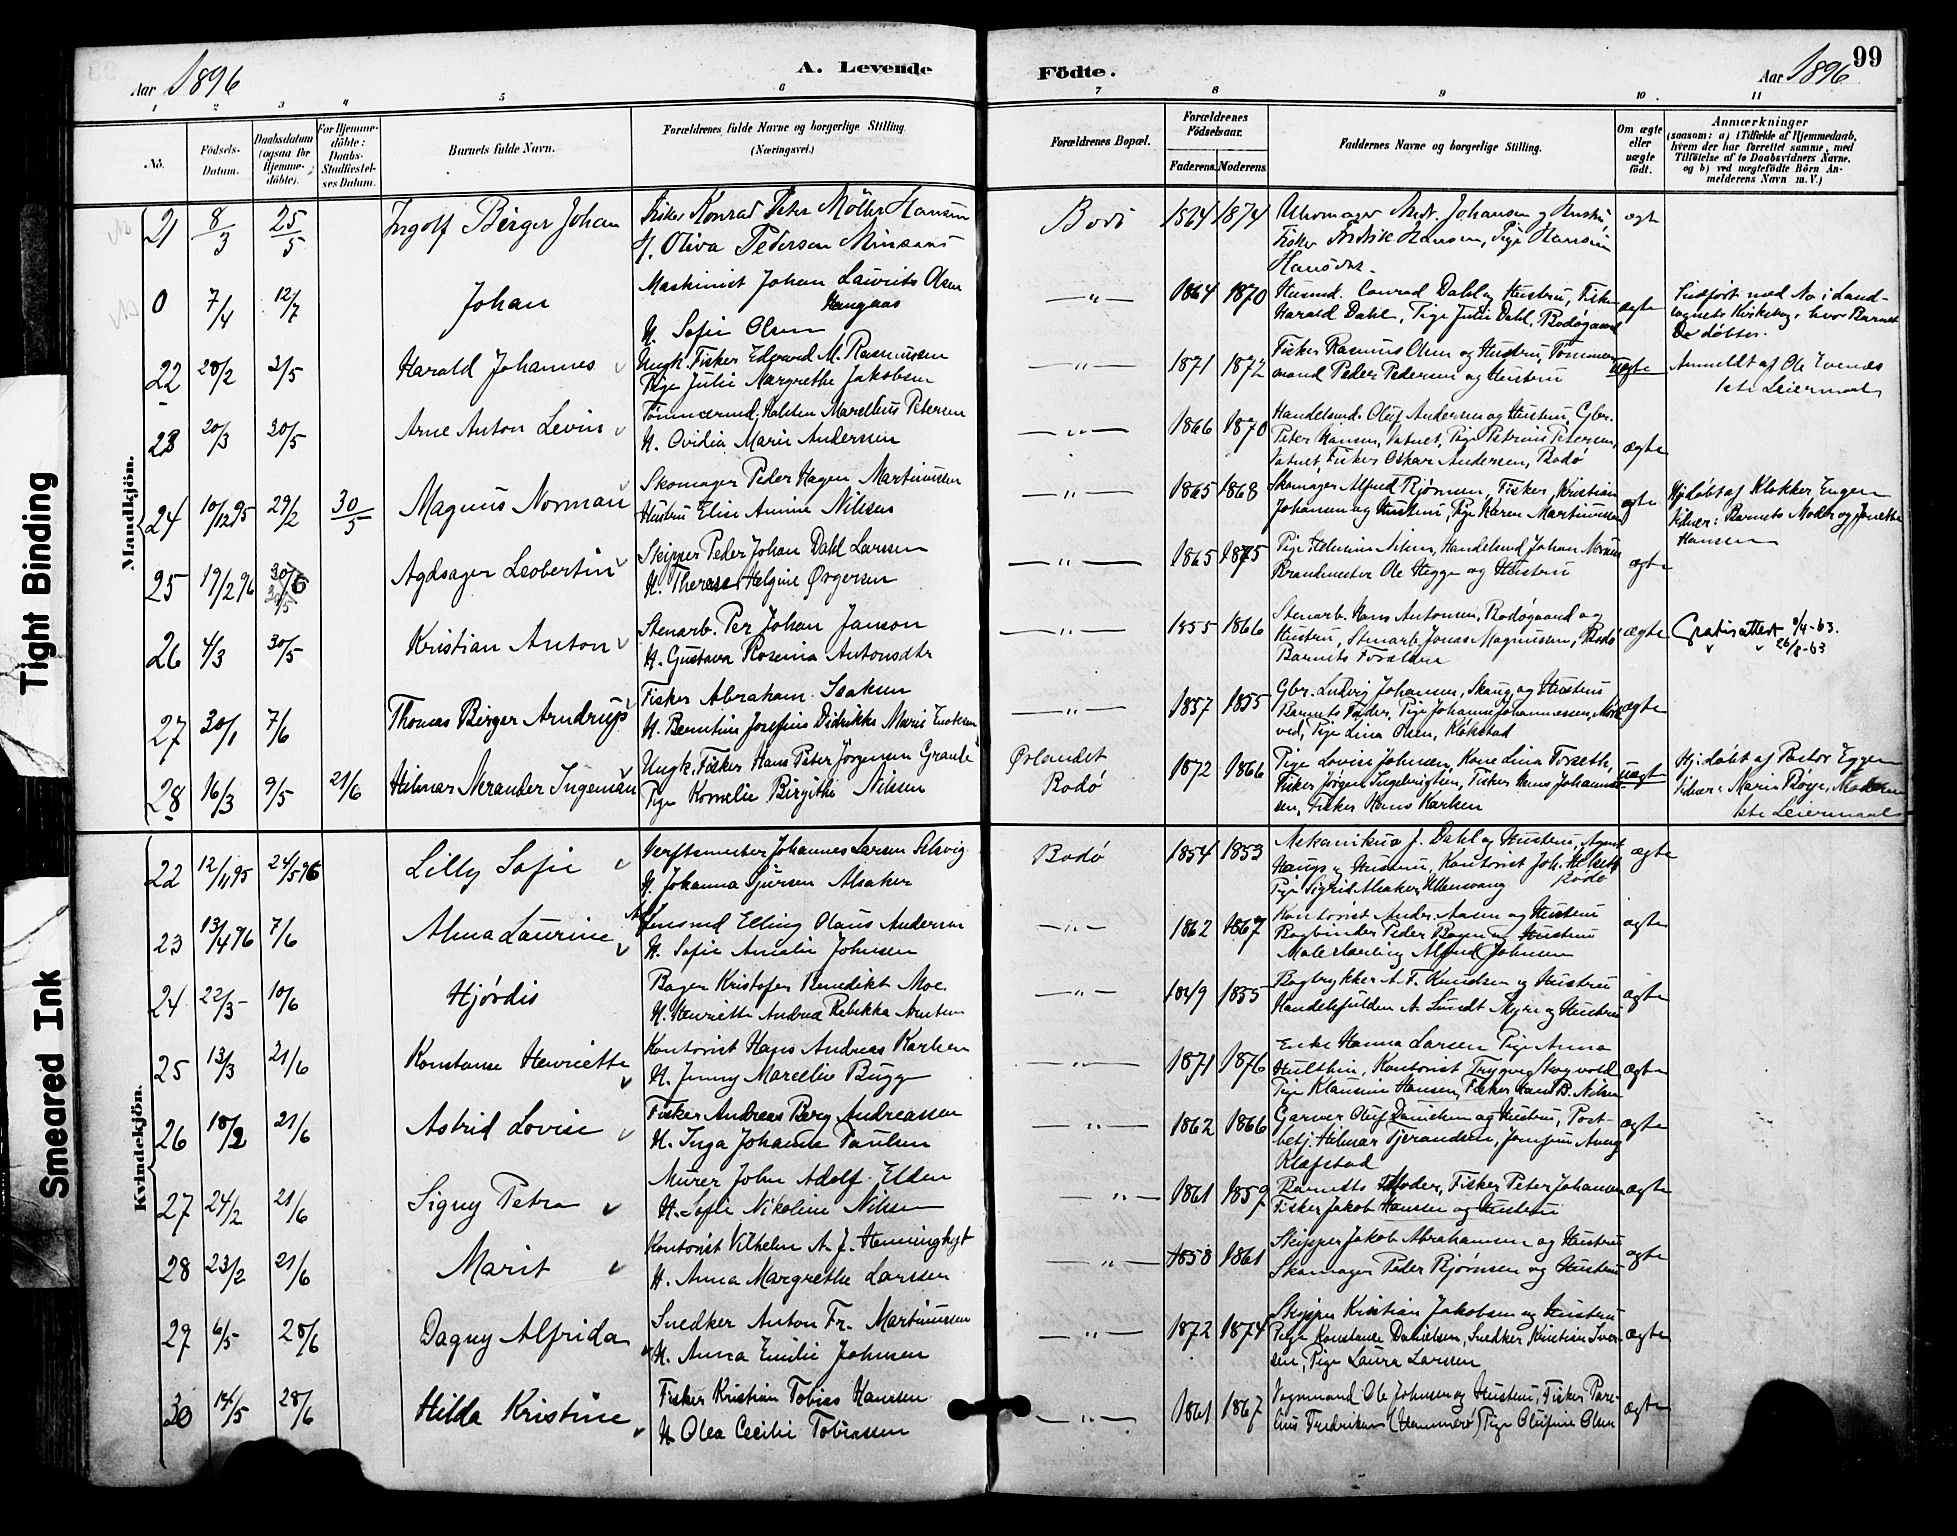 Aar 1896
A. Levende
Födte.
Aar 1896
99
1 2 3 4 5 6 7 8 9 10 11
No.
Födsels-
Datum.
Daabsdatum
(ogsaa for
Hjemme-
döbte).
For Hjemme-
döbte:
Daabs-
Stadfæstel-
ses Datum.
Barnets fulde Navn.
Forældrenes fulde Navne og borgerlige Stilling.
(Næringsvei.)
Forældrenes Bopæl.
Forældrenes
Födselsaar.
Faderens.
Moderens.
Faddernes Navne og borgerlige Stilling.
Om ægte
eller
uægte
födt.
Anmærkninger
(saasom: a) i Tilfælde af Hjemmedaab,
hvem der har forrettet samme, med
Tilföielse af to Daabsvidners Navne,
og b) ved uægtefödte Börn An-
melderens Navn m. V.)
Mandkjön.
21 8/3 25/5 Ingolf Birger Johan
Fisker Konrad Peter Möller Hansen
H. Oliva Pedersen
Bodö 1864 1874
Johansen og Hustru,
Fisker Fredrik Hansen, Pige
ægte
0 7/4 12/7 Johan
Maskinist Johan Laurits Olsen
Haugaas
H. Sofie Olsen
—"— 1864 1870
Husmd. Conrad Dahl og Hustru, Fisker
Harald Dahl, Pige Julie Dahl, Bodøgaard
ægte
Indført med No i Land-
sognets Kirkebog, hvor Barnet
er døbt.
22 28/2 3/5 Harald Johannes
Ungk. Fisker Edvard M. Rasmussen
Pige Julie Margrethe Jakobsen
—"— 1871 1872
Fisker Rasmus Olsen og Hustru, Tømmer-
mand Peder Pedersen og Hustru
uægte
Anmeldt af Ole Evenes
1ste Leiermaal
23 20/3 30/5 Arne Anton Levin
Tömmermd. Halsten Marelius Petersen
H. Ovidia Marie Andersen
—"— 1866 1870
Handelsmd. Oluf Andersen og Hustru, Gbr.
Peter Hansen, Vatnet, Pige Petrine Petersen,
Vatnet, Fisker Oskar Andersen, Bodø
ægte
24 10/12 95 29/2 30/5 Magnus Norman
Skomager Peder Hagen Martinussen
Hustru Elise Amine Nilsen
—"— 1865 1868
Skomager Alfred Bjørnsen, Fisker Kristian
Johansen og Hustru, Pige Karen Martinussen
ægte
Hjdøbt af Klokker Engen
Vidner: Barnets Moder og Jonetta
Hansen
25 19/2 96 30/5 Agdsager Leobertin
Skipper Peder Johan Dahl Larssen
H. Therese Helgine Ørgersen
—"— 1865 1875
Pige Helmine Nilsen, Handelsmd Johan
Brandmester Ole Hegge og Hustru
ægte
26 4/3 30/5 Kristian Anton
Stenarb. Per Johan Janson
H. Gustava Rosina Antonsdtr
—"— 1855 1866
Stenarb. Hans Antonsen, Bodøgaard og
Hustru, Stenarb. Jonas Magnussen, Bodø
Barnets Forældre
ægte
Gratisattest 9/4-63.
" " 26/8-63
27 30/1 7/6 Thomas Birger Arndrup
Fisker Abraham Isaksen
H. Berntine Josefine Didrikke Marie Enoksen
—"— 1857 1855
Gbr. Ludvig Johansen, Skaug og Hustru
Barnets Fader, Pige Johanne Johannessen,
Pige Lina Olsen, Kløkstad
ægte
28 16/3 9/5 21/6 Hilmar Nerander Ingeman
Ungk. Fisker Hans Peter Jørgensen Grande
Pige Kornelie Birgithe Nilsen
Ørlandet
Bodø
1872 1866
Pige Lovise Johnsen, Kone Lina Forseth,
Fisker Jørgen Ingebrigtsen, Fisker Hans Johannes-
sen, Fisker Hans Karlsen
uægt
Hjdøbt af Pastor Eggen
Vidner: Marie Bøye, Moderen
1ste Leiermaal
Kvindekjön.
22 12/11 95 24/5 96 Lilly Sofie
Verftsmester Johannes Larsen Selsvig
H. Johanna Sjursen Alsaker
Bodø 1854 1853
Mekanikus J. Dahl og Hustru, Agent
Haugs og Hustru, Kontorist Joh. Helseth
Bodø
Pige Sigrid Alsaker, Ullensvang
ægte
23 13/4 96 7/6 Alma Laurine
Elling Olaus Andersen
H. Sofie Amalie Johnsen
—"— 1862 1867
Kontorist Andr. Aasen og Hustru
Bogbinder Peder Boyn og Hustru
Malerlærling Alfred Johnsen
ægte
24 22/3 10/6 Hjørdis
Bager Kristofer Benedikt Moe
H. Henriette Andrea Rebekka Arntsen
—"— 1849 1855
Bogtrykker A. F. Knudsen og Hustru
Handelsfuldm. A. Lundt Myre og Hustru
ægte
25 13/3 21/6 Konstanse Henriette
Kontorist Hans Andreas Karlsen
H. Jenny Marcelie Bugge
—"— 1871 1876
Enke Hanna Larsen Pige Anna
Hulthin, Kontorist Trygve Skogvold
Pige Klausine Hansen, Fisker Hans B. Nilsen
ægte
26 18/2 21/6 Astrid Lovise
Fisker Andreas Berg Andreassen
H. Inga Johanna Paulsen
—"— 1862 1866
Garver Oluf Danielsen og Hustru, Post-
betj. Hilmar Tjerandsen, Josefine Aweg
Klæfstad
ægte
27 24/2 21/6 Signy Petra
Murer John Adolf Elden
H. Sofie Nikoline Nilsen
—"— 1861 1859
Barnets Moder, Fisker Peter Johansen
Fisker Jakob Hansen og Hustru
ægte
28 23/2 21/6 Marit
Kontorist Vilhelm A. J. Heminghyt
H. Anna Margrethe Larssen
—"— 1858 1861
Skipper Jakob Abrahamsen og Hustru
Skomager Peder Bjørnsen og Hustru
ægte
29 6/5 28/6 Dagny Alfrida
Snedker Anton Fr. Martinussen
H. Anna Emilie Johnsen
—"— 1872 1874
Skipper Kristian Jakobsen og Hustru
Pige Konstanse Danielsen, Snedker Kristian Iver-
sen, Pige Laura Larssen
ægte
30 14/5 28/6 Hilda Kristine
Fisker Kristian Tobias Hanssen
H Olea Cecilie Tobiassen
—"— 1861 1867
Vognmand Ole Johnsen og Hustru, Fisker Pare-
lius Fredriksen (Hammerö) Pige Olufine Olsen
ægte
Tight Binding
Smeared Ink